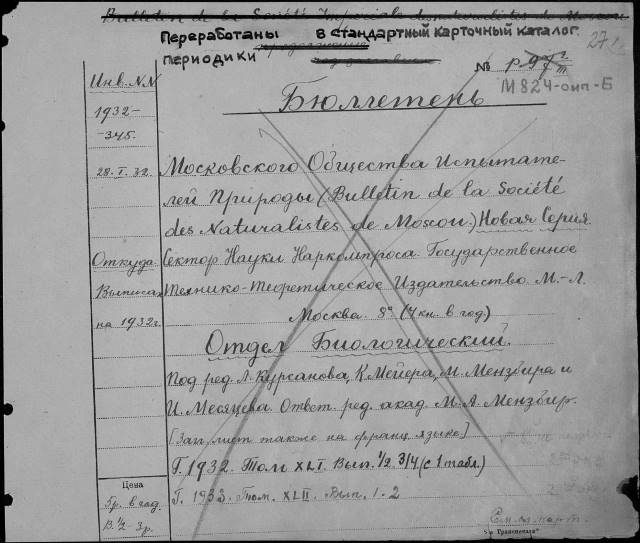 Bulletin de la Société Impériale des naturalistes de Moscou
Переработаны в стандартный карточный каталог
периодики
27
№ р 97
М824-оип-Б
Инв. NN
1932-
-345.
28.I.32.
Бюллетень
Московского Общества Испытате-
лей Природы (Bulletin de la Société
des Naturalistes de Moscou) Новая Серия.
Откуда
Выписан
на 1932г.
Сектор Науки Наркомпроса. Государственное
Технико-Теоретическое Издательство. М.-Л.
Москва. 8° (4 кн. в год)
Отдел Биологический.
Под ред. Л. Курсанова, К. Мейера, М. Мензбира и
И. Месяцева. Ответ. ред. акад. М. А. Мензбир.
[Заг. лист также на франц. языке]
Г. 1932. Том XLI. Вып. 1/2. 3/4. (с 1 табл.)
Г. 1933. Том. XLII. Вып. 1. 2
Цена
6р. в год
В. 1/2 - 3р.
См. сл. карт.